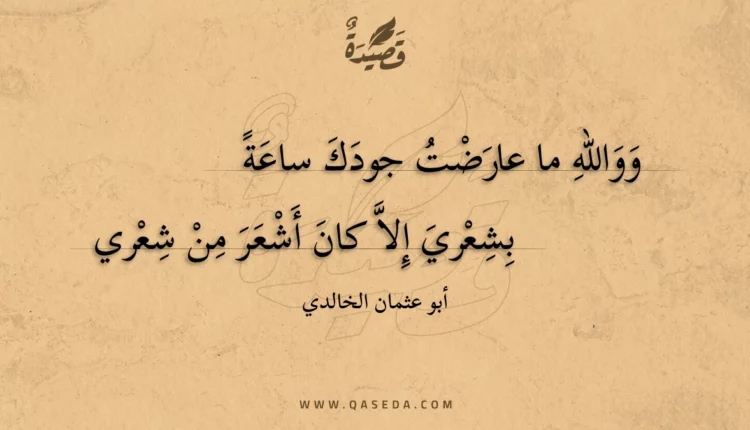 قَصِيدَةٌ
وَوَاللهِ ما عارَضْتُ جودَكَ ساعَةً
بِشِعْرِيَ إِلاَّ كانَ أَشْعَرَ مِنْ شِعْري
أبو عثمان الخالدي
WWW.QASEDA.COM